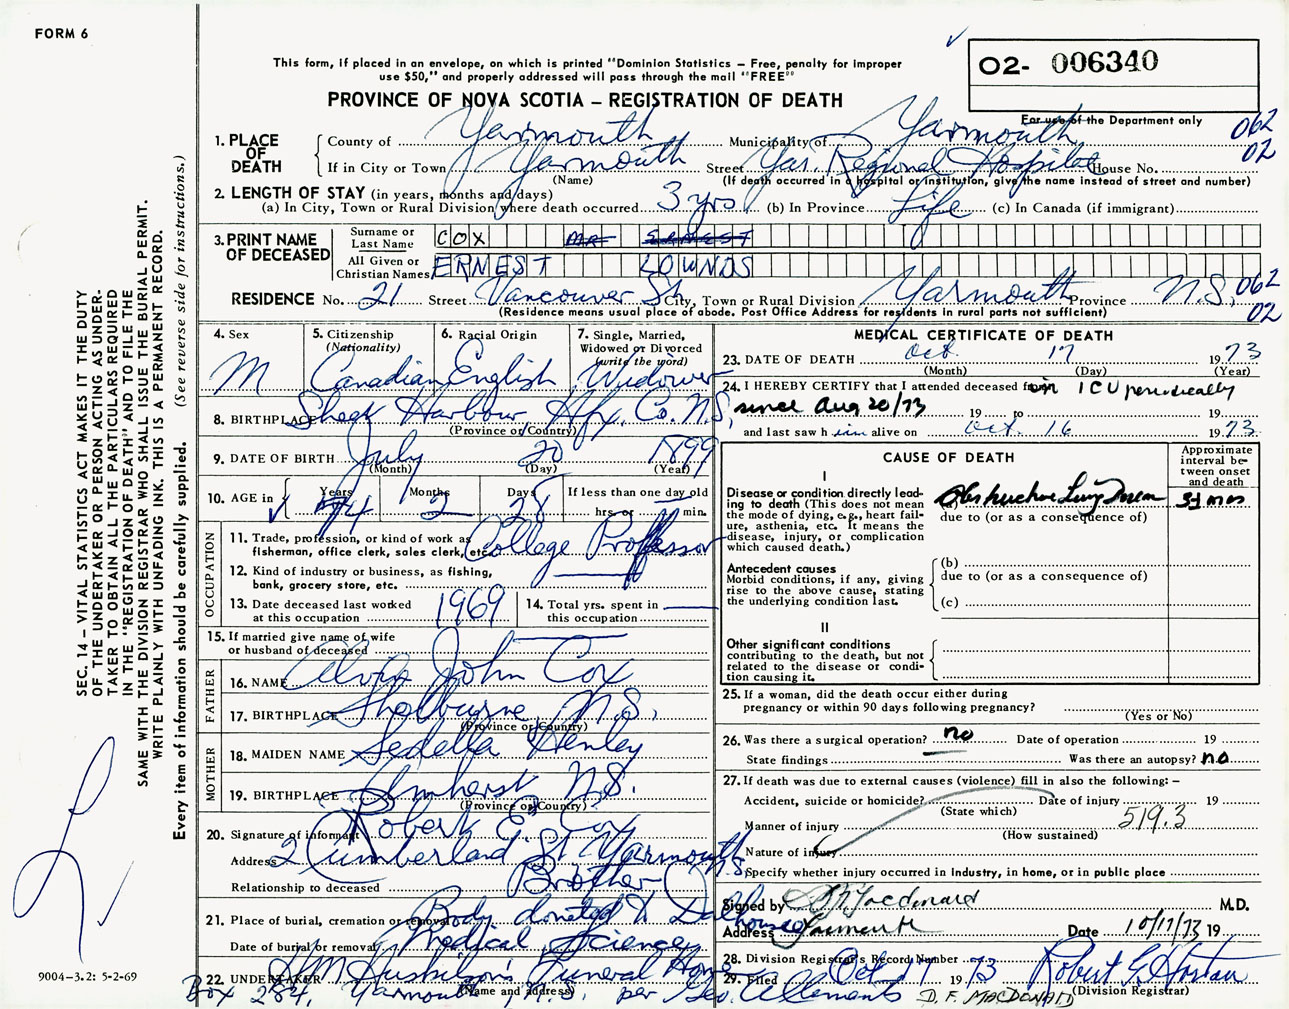 FORM 6
This form, if placed in an envelope, on which is printed "Dominion Statistics — Free, penalty for improper
use $50," and properly addressed will pass through the mail "FREE"
PROVINCE OF NOVA SCOTIA — REGISTRATION OF DEATH
O2- 006340
For use of the Department only
062
02
1. PLACE OF DEATH
County of Yarmouth Municipality of Yarmouth
If in City or Town Yarmouth Street Yar. Regional Hospital House No.
(Name) (If death occurred in a hospital or institution, give the name instead of street and number)
2. LENGTH OF STAY (in years, months and days)
(a) In City, Town or Rural Division where death occurred 3 yrs. (b) In Province Life (c) In Canada (if immigrant)
3. PRINT NAME OF DECEASED
Surname or Last Name COX
All Given or Christian Names ERNEST LOWNDS
RESIDENCE No. 21 Street Vancouver St City, Town or Rural Division Yarmouth Province N.S. 062
02
(Residence means usual place of abode. Post Office Address for residents in rural parts not sufficient)
4. Sex
M
5. Citizenship
(Nationality)
Canadian
6. Racial Origin
English
7. Single, Married,
Widowed or Divorced
(write the word)
Widower
8. BIRTHPLACE Sheet Harbour Hfx. Co. N.S.
(Province or Country)
9. DATE OF BIRTH July 20 1899
(Month) (Day) (Year)
10. AGE in Years Months Days If less than one day old
74 2 28 hrs. or min.
OCCUPATION
11. Trade, profession, or kind of work as
fisherman, office clerk, sales clerk, etc. College Professor
12. Kind of industry or business, as fishing,
bank, grocery store, etc.
13. Date deceased last worked
at this occupation 1969
14. Total yrs. spent in
this occupation
15. If married give name of wife
or husband of deceased
FATHER
16. NAME Alvin John Cox
17. BIRTHPLACE Shelburne N.S.
(Province or Country)
MOTHER
18. MAIDEN NAME Sedella Henley
19. BIRTHPLACE Amherst N.S.
(Province or Country)
20. Signature of informant Robert E. Cox
Address 2 Cumberland St Yarmouth N.S.
Relationship to deceased Brother
21. Place of burial, cremation or removal Body donated to Dalhousie
Date of burial or removal Medical Sciences
22. UNDERTAKER Funeral Home
(Name and address)
Box 284, Yarmouth, N.S. per Geo. A Clements
MEDICAL CERTIFICATE OF DEATH
23. DATE OF DEATH Oct. 17 1973
(Month) (Day) (Year)
24. I HEREBY CERTIFY that I attended deceased from in ICU periodically
since Aug 20/73 19 to 19
and last saw h im alive on Oct. 16 1973
CAUSE OF DEATH
Approximate
interval be-
tween onset
and death
I
Disease or condition directly lead-
ing to death (This does not mean
the mode of dying, e.g., heart fail-
ure, asthenia, etc. It means the
disease, injury, or complication
which caused death.)
(a) Obstructive Lung Disease
due to (or as a consequence of)
Antecedent causes
Morbid conditions, if any, giving
rise to the above cause, stating
the underlying condition last.
(b)
due to (or as a consequence of)
(c)
II
Other significant conditions
contributing to the death, but not
related to the disease or condi-
tion causing it.
25. If a woman, did the death occur either during
pregnancy or within 90 days following pregnancy?
(Yes or No)
26. Was there a surgical operation? no Date of operation 19
State findings Was there an autopsy? no
27. If death was due to external causes (violence) fill in also the following: —
Accident, suicide or homicide? Date of injury 19
(State which)
Manner of injury 519.3
(How sustained)
Nature of injury
Specify whether injury occurred in Industry, in home, or in public place
Signed by D F Macdonald M.D.
Address Yarmouth Date 10/17/73 19
28. Division Registrar's Record Number
29. Filed Oct 17 1973
(Division Registrar)
D. F. MACDONALD
SEC. 14 — VITAL STATISTICS ACT MAKES IT THE DUTY
OF THE UNDERTAKER OR PERSON ACTING AS UNDER-
TAKER TO OBTAIN ALL THE PARTICULARS REQUIRED
IN THE "REGISTRATION OF DEATH" AND TO FILE THE
SAME WITH THE DIVISION REGISTRAR WHO SHALL ISSUE THE BURIAL PERMIT.
WRITE PLAINLY WITH UNFADING INK. THIS IS A PERMANENT RECORD.
Every item of information should be carefully supplied. (See reverse side for instructions.)
9004—3.2: 5-2-69